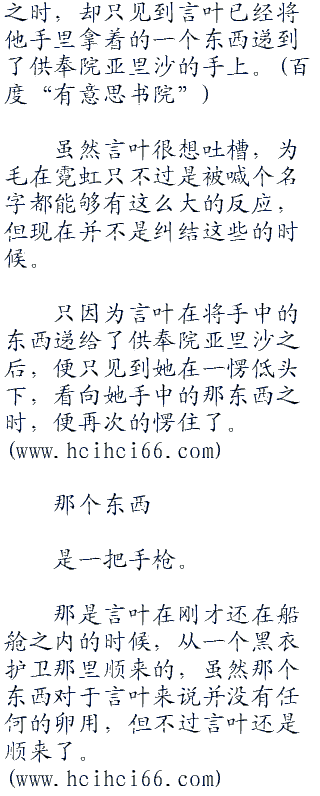 之时，却只见到言叶已经将
他手里拿着的一个东西递到
了供奉院亚里沙的手上。(百
度“有意思书院”)
虽然言叶很想吐槽，为
毛在霓虹只不过是被喊个名
字都能够有这么大的反应，
但现在并不是纠结这些的时
候。
只因为言叶在将手中的
东西递给了供奉院亚里沙之
后，便只见到她在一愣低头
下，看向她手中的那东西之
时，便再次的愣住了。
(www.hcihci66.com)
那个东西
是一把手枪。
那是言叶在刚才还在船
舱之内的时候，从一个黑衣
护卫那里顺来的，虽然那个
东西对于言叶来说并没有任
何的卵用，但不过言叶还是
顺来了。
(www.hcihci66.com)